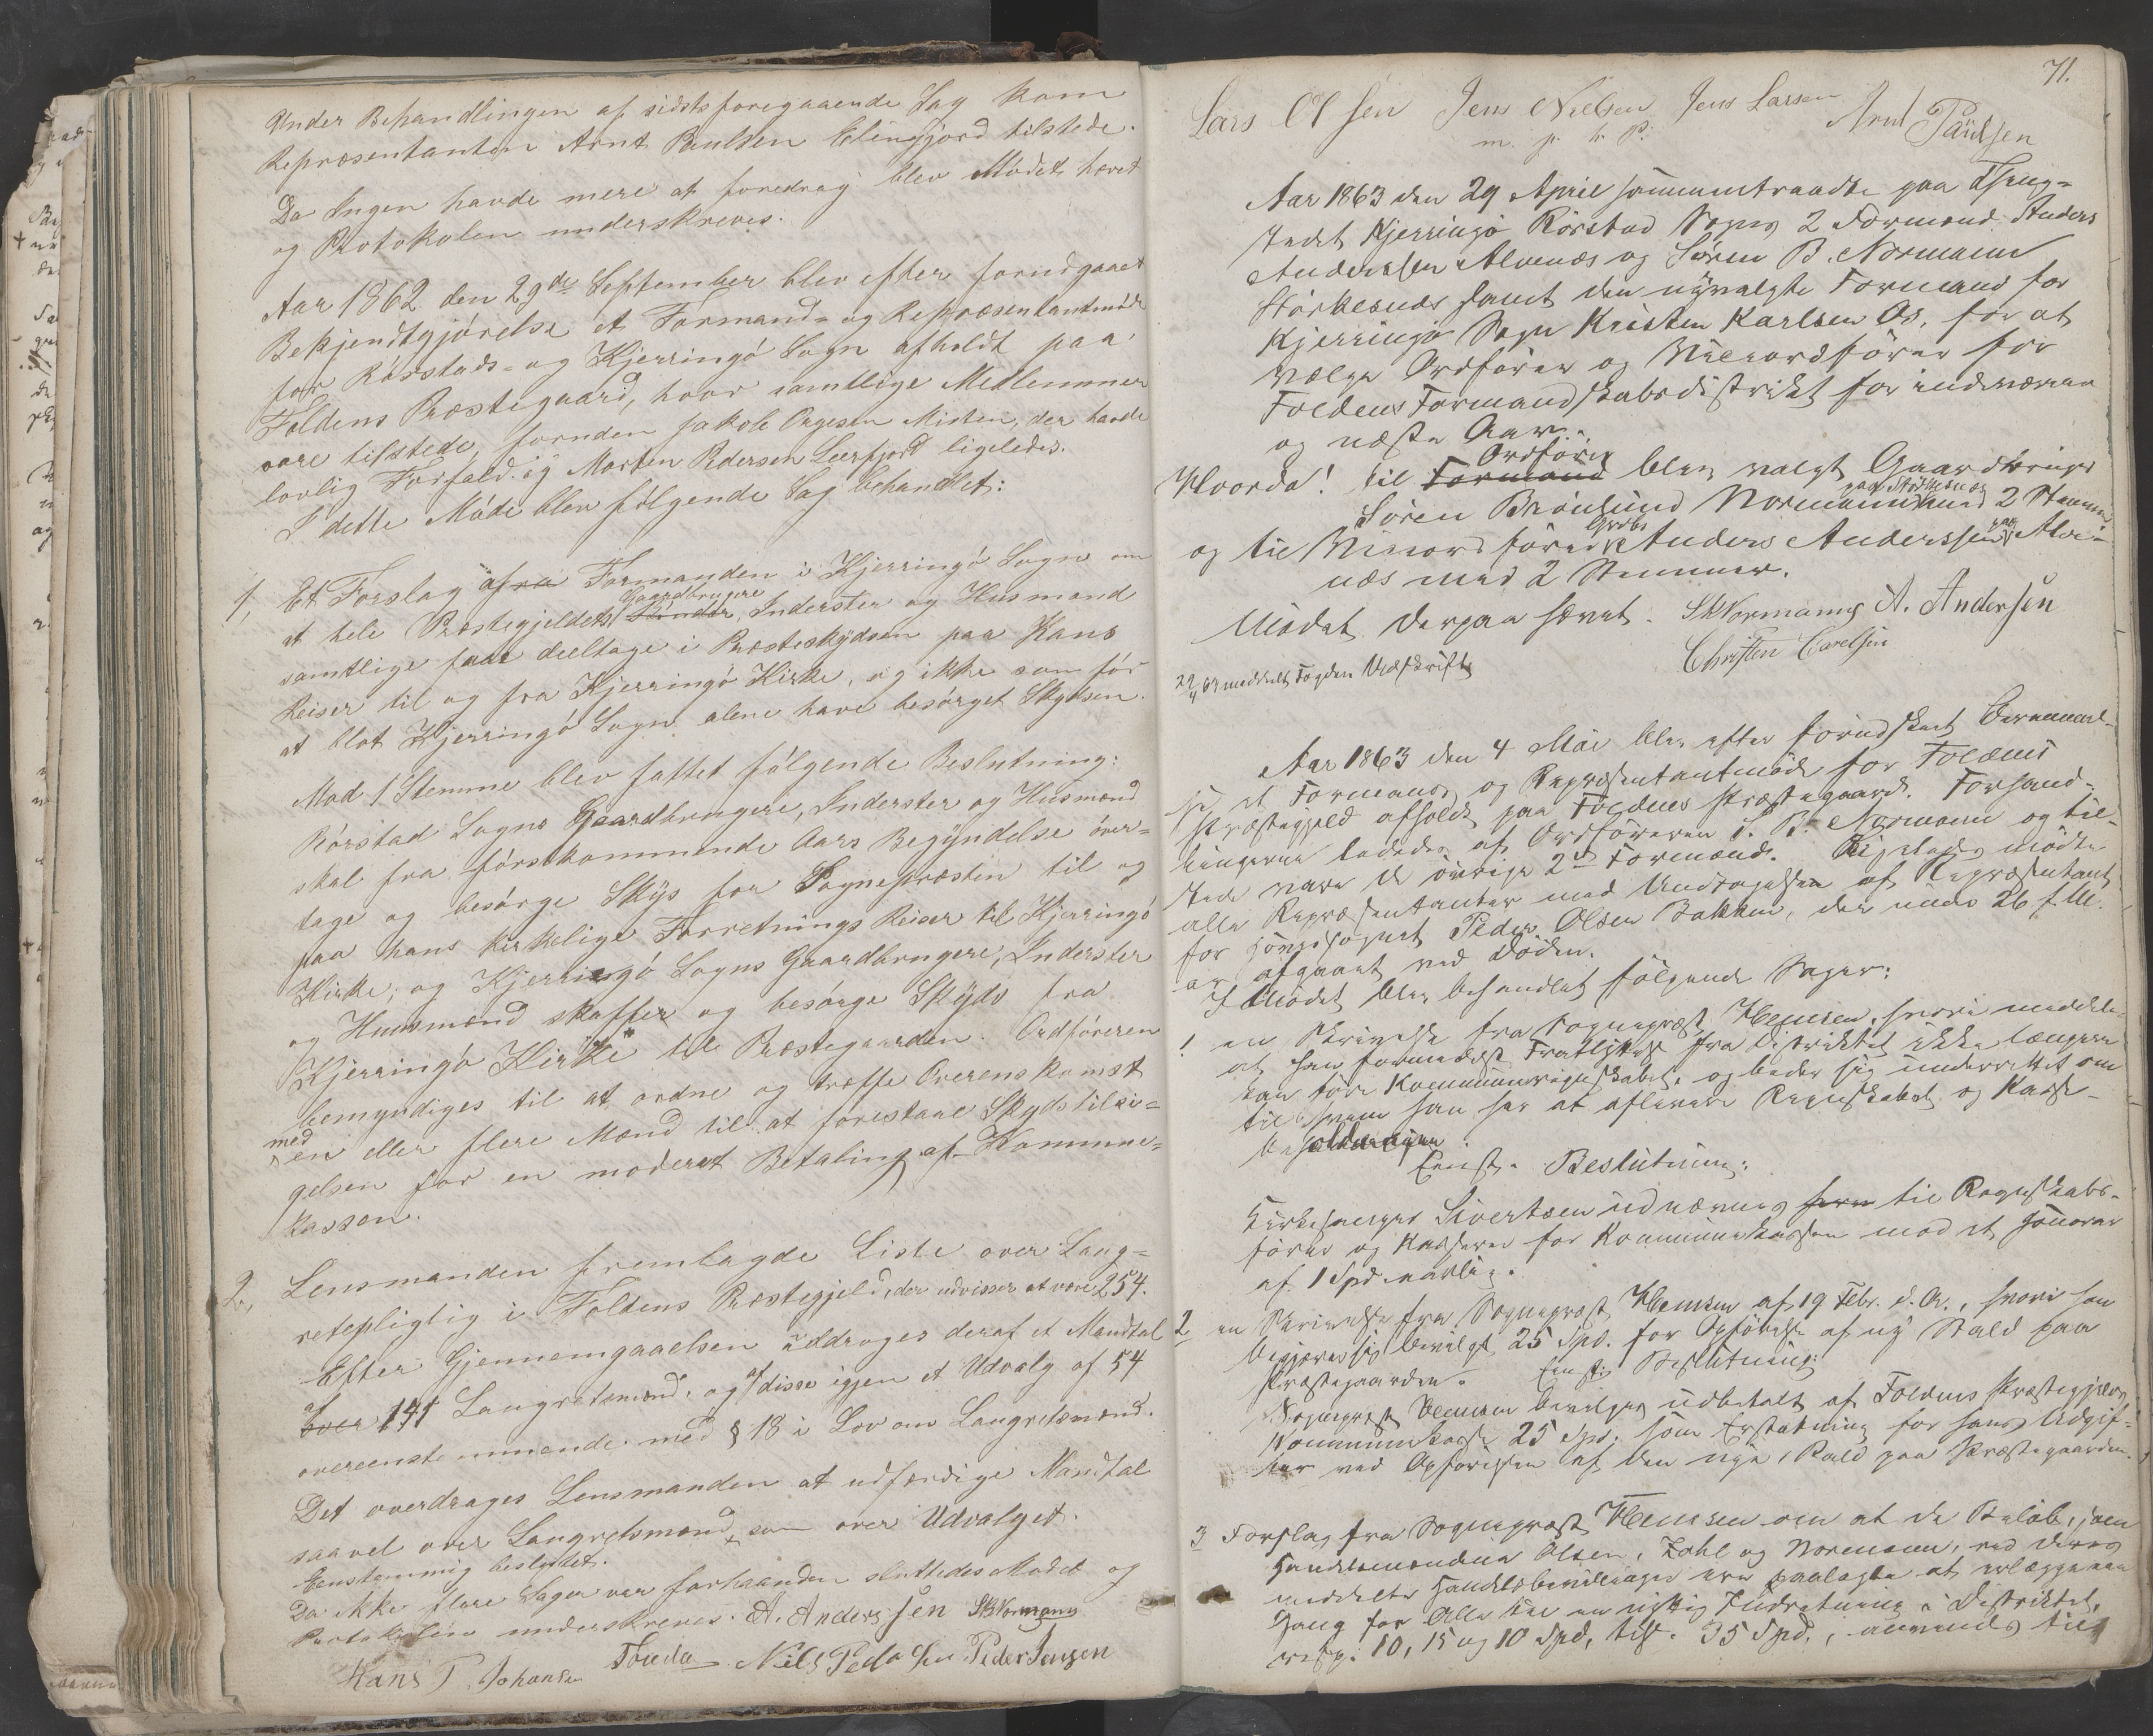 Under Behandlingen af sidstforegaaende Sag kom
Repræsentanten Arnt Paulsen Elvingfjord tilstede.
Da Ingen havde mere at foredrag blev Mødet hævet
og Protokolen underskreves.
Aar 1862 den 29de September blev efter forudgaaet
Bekjendtgjörelse et Formand- og Repræsentantmöde
for Rørstads- og Kjerringö Sogn afholdt paa
Foldens Præstegaard, hvor samtlige Medlemmer
vare tilstede, foruden Jakob Misten, der havde
lovlig Forfald og Morten Pedersen Leerfjord ligeledes.
I dette Möde blev fölgende Sag behandlet:
1, Et Forslag fra Formanden i Kjerringö Sogn om
Gaardbrugere
at hele Præstegjeldets Bønder, Inderster og Husmænd
samtlige faar deeltage i Præsteskydsen paa Hans
Reiser til og fra Kjerringö Kirke, og ikke som för
at blot Kjerringö Sogn alene have besørget Skydsen.
Mod 1 Stemme blev fattet fölgende Beslutning:
Rörstad Sogns Gaardbrugere, Inderster og Husmænd
skal fra förstkommende Aars Begyndelse över-
tage og besörge Skyds for Sognepræsten til og
paa hans kirkelige Forretnings Reiser til Kjerringö
Kirke; og Kjerringö Sogns Gaardbrugere, Inderster
og Huusmænd skaffer og besörge Skyds fra
Kjerringö Kirke til Præstegaarden. Ordföreren
bemyndiges til at ordne og træffe Overenskomst
med
en eller flere Mænd til at forestaae Skydstilsi-
gelsen for en moderat Betaling af Kommune-
kassen.
2, Lensmanden fremlagde Liste over Laug-
retspligtig i Foldens Præstegjeld, der udviser at være 254.
Efter Gjennemgaaelsen uddroges deraf et Mandtal
af
over 141 Laugretsmænd, og af disse igjen et Udvalg af 54
overeenstemmende med § 18 i Lov om Laugretsmænd.
Det overdrages Lensmanden at udfærdige Mandtal
saavel over Laugretsmænd, som over Udvalget.
Eenstemmig besluttet.
Da ikke flere Sager var forhaanden sluttedes Mødet og
Protokolen underskreves. A. Anderssen SBNormann
Hans P. Johansen Nils Pedersen Peder Jensen
71.
Lars Olsen Jens Nielsen Jens Larsen Arnt Paulsen
m. p. P.
Aar 1863 den 29 April sammentraadte paa Thing-
stedet Kjerringö Rörstad Sogns 2 Formænd Anders
Anderssen Alvenæs og Sören B. Normann
Störkesnæs samt den nyvalgte Formand for
Kjerringö Sogn Kristen Karlsen Os, for at
vælge Ordförer og Viceordförer for
Foldens Formandskabsdistrikt for indeværende
og næste Aar.
Ordförer
Hvorda! til Formand blev valgt Gaardbruger
paa Störkesnæs
Sören Brönlund Normann med 2 Stemmer
Grbr. paa
og til Viceordförer Anders Anderssen Alve-
næs med 2 Stemmer.
Mödet derpaa hævet. SBNormann A. Andersen
Christen Carelsen
29/4 63 meddelt Fogden Udskrift
Aar 1863 den 4 Mai blev efter forudskeet Berammel-
se et Formands og Repræsentantmöde for Foldens
Præstegjeld afholdt paa Foldens Præstegaard. Forhand-
lingerne lededes af Ordföreren S. B. Normann og til-
stede vare de övrige 2de Formænd. Ligeledes mödte
alle Repræsentanter med Undtagelse af Repræsentant
for Hovedsognet Peder Olsen Bakken, der under 26 f. M.
er afgaaet ved Döden.
I Mödet blev behandlet fölgende Sager:
1 en Skrivelse fra Sognepræst Klemsen, hvori meddeles
at han formedelst Fratlyttelse fra Distriktet ikke længere
kan före Kommuneregnskabet, og beder sig underrettet om
til hvem han har at aflevere Regnskabet og Kasse-
beholdningen.
Eenst. Beslutning:
Kirkesanger Sivertsen udnævnes som til Regnskabs-
förer og Kasserer for Kommunekassen mod et Honorar
af 1 Spd. aarlig.
2 en Skrivelse fra Sognepræst Klemsen af 19 Febr. d. A., hvori han
begjærer sig bevilget 25 Spd. for Opförelse af ny Stald paa
Præstegaarden. Eenst. Beslutning:
Sognepræst Klemsen bevilges udbetalt af Foldens Præstegjelds
Kommunekasse 25 Spd. som Erstatning for hans Udgif-
ter ved Opförelsen af den nye Stald paa Præstegaarden.
3 Forslag fra Sognepræst Klemsen om at de Belöb, som
Handelsmændene Olsen, Zahl og Normann, ved deres
meddelte Handelsbevillinger ere paalagte at erlægge een
Gang for Alle til en nyttig Indretning i Distriktet,
resp. 10, 15 og 10 Spd., tils. 35 Spd., anvendes til